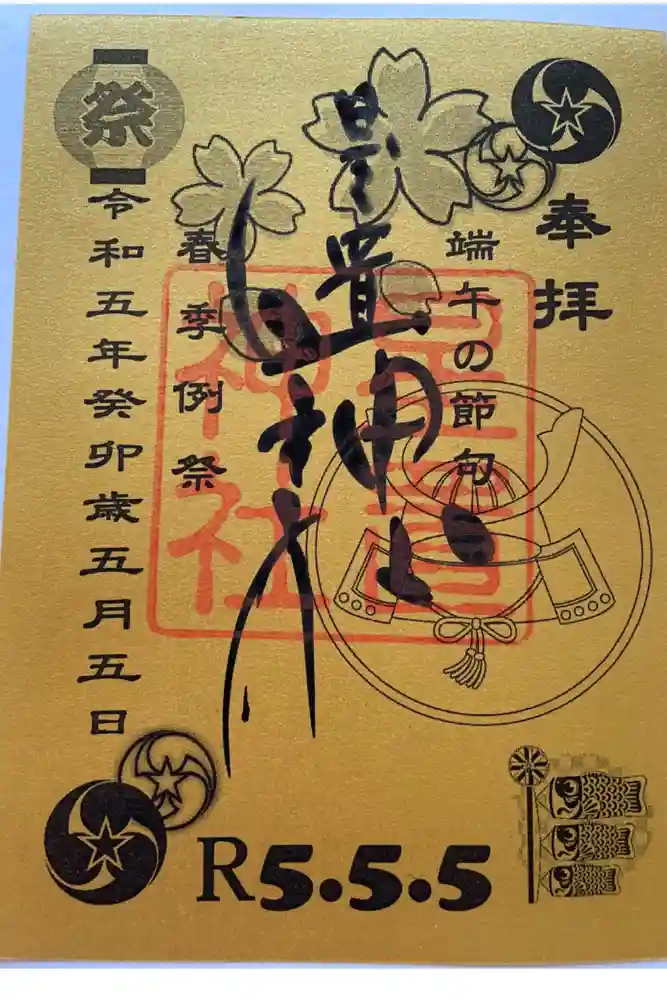 奉拝
端午の節句
星置
神社
春季例祭
祭
令和五年癸卯歳五月五日
R5.5.5